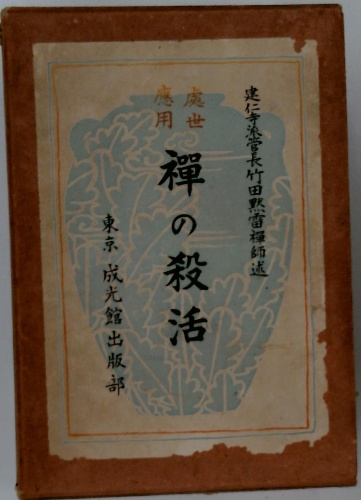 建仁寺派管長竹田黙雷禪師述
處世
應用
禪の殺活
東京 成光館出版部